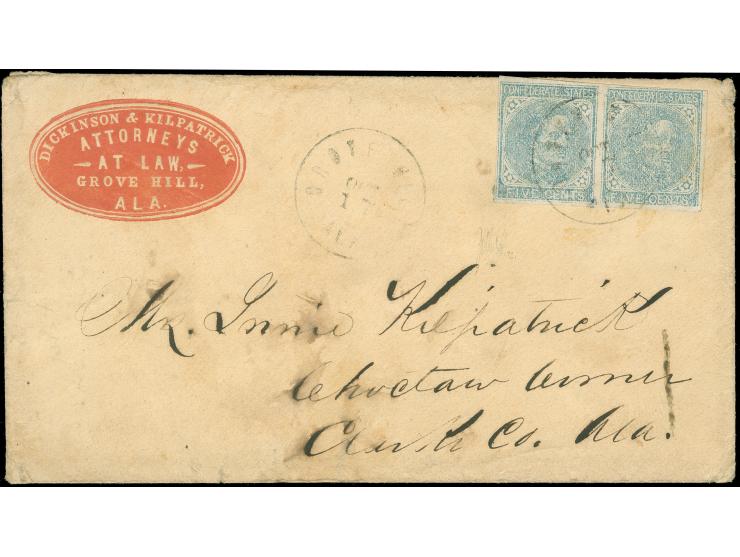 DICKINSON & KILPATRICK
ATTORNEYS
AT LAW,
GROVE HILL,
ALA.
CONFEDERATE STATES
FIVE CENTS
CONFEDERATE STATES
FIVE CENTS
GROVE
Mr. Kilpatrick
Choctaw Corner
Clark Co. Ala.